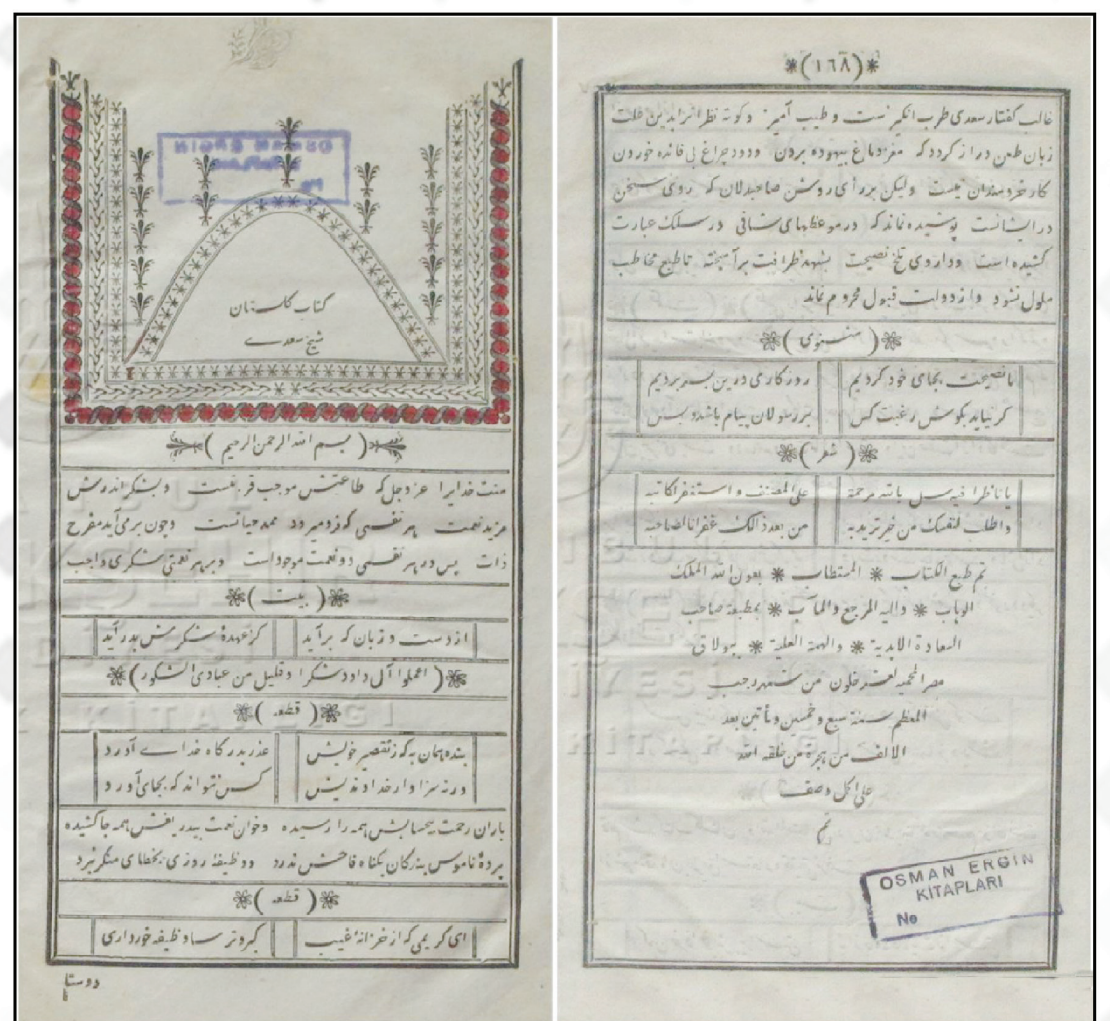 كتاب كلستان
شيخ سعدى
( بسم الله الرحمن الرحيم )
منت خدايرا عز وجل كه طاعتش موجب قربتست وبشكر اندرش
مزيد نعمت هر نفسى كه فرو ميرود ممد حياتست وچون برمى آيد مفرح
ذات پس در هر نفسى دو نعمت موجود است وبر هر نعمتى شكرى واجب
( بيت )
از دست وزبان كه برآيد كز عهدۀ شكرش بدر آيد
( اعملوا آل داود شكرا وقليل من عبادى الشكور )
( قطعه )
بنده همان به كه ز تقصير خويش عذر بدركاه خداى آورد
ورنه سزاوار خداونديش كس نتواند كه بجاى آورد
باران رحمت بيحسابش همه را رسيده وخوان نعمت بيدريغش همه جا كشيده
پردۀ ناموس بندكان بكناه فاحش ندرد ووظيفۀ روزى بخطاى منكر نبرد
( قطعه )
اى كريمى كه از خزانۀ غيب كبر وترسا وظيفه خور دارى
دوستا
(١٦٨)
غالب كفتار سعدى طرب انكيزست وطيب آميز وكوته نظرانرا بدين علت
زبان طعن دراز كردد كه مغز دماغ بيهوده بردن ودود چراغ بى فائده خوردن
كار خردمندان نيست وليكن بر رأى روشن صاحبدلان كه روى سخن
در ايشانست پوشيده نماند كه در موعظهاى شافى در سلك عبارت
كشيده است وداروى تلخ نصيحت بشهد ظرافت برآميخته تا طبع مخاطب
ملول نشود واز دولت قبول محروم نماند
( مثنوى )
ما نصيحت بجاى خود كرديم روزكارى درين بسر برديم
كر نيايد بكوش رغبت كس بر رسولان پيام باشد وبس
( شعر )
يا ناظرا فيه سل بالله مرحمة على المصنف واستغفر لكاتبه
واطلب لنفسك من خير تريد به من بعد ذالك غفرانا لصاحبه
تم طبع الكتاب المستطاب بعون الله الملك
الوهاب واليه المرجع والمآب بمطبعة صاحب
السعادة الابدية والهمة العلية ببولاق
مصر المحمية لعشر خلون من شهر رجب
المعظم سنة سبع وخمسين ومأتين بعد
الالف من هجرة من خلقه الله
على اكمل وصف
تم
OSMAN ERGIN
KITAPLARI
No